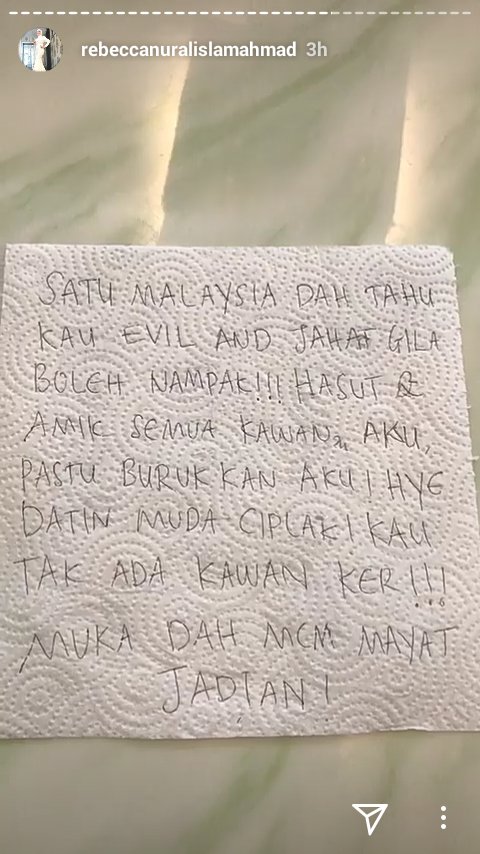 rebeccanuralislamahmad 3h
SATU MALAYSIA DAH TAHU
KAU EVIL AND JAHAT GILA
BOLEH NAMPAK!!! HASUT &
AMIK SEMUA KAWAN2 AKU,
PASTU BURUKKAN AKU! HYE
DATIN MUDA CIPLAK! KAU
TAK ADA KAWAN KER!!!
MUKA DAH MCM MAYAT
JADIAN!